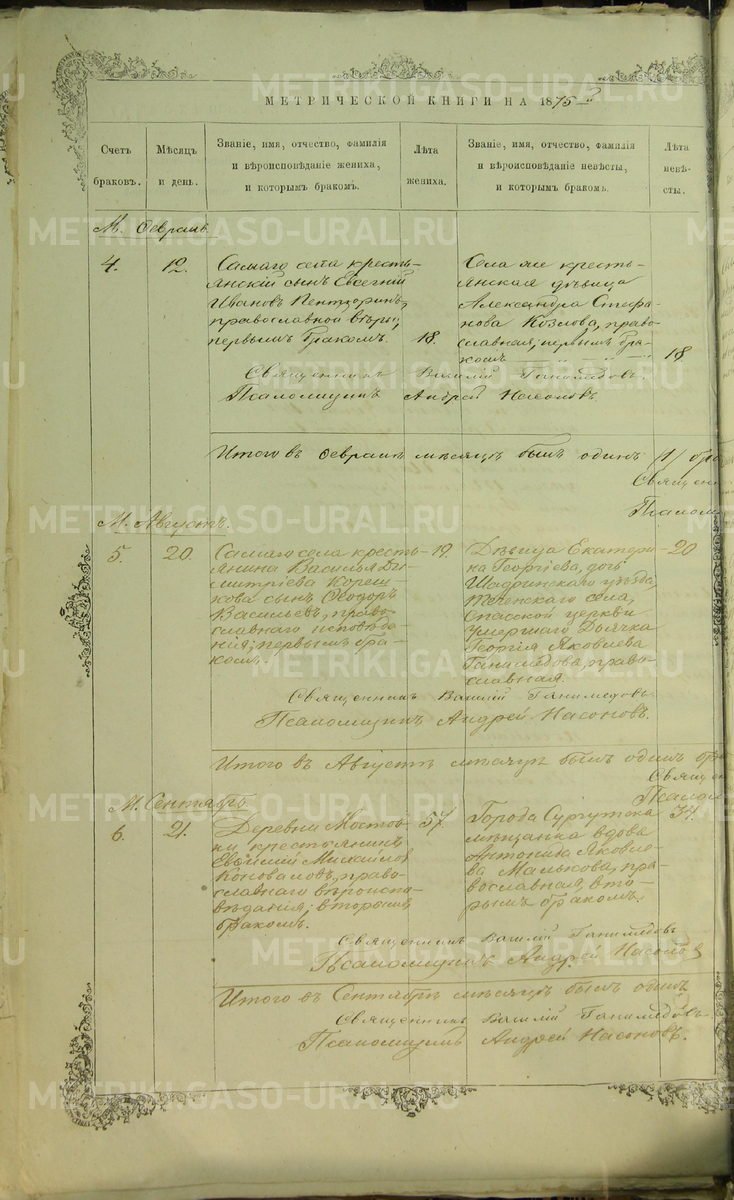 МЕТРИЧЕСКОЙ КНИГИ НА 1875 й
Счетъ браковъ.
Мѣсяцъ и день.
Званіе, имя, отчество, фамилія
и вѣроисповѣданіе жениха,
и которымъ бракомъ.
Лѣта жениха.
Званіе, имя, отчество, фамилія
и вѣроисповѣданіе невѣсты,
и которымъ бракомъ.
Лѣта невѣ-
сты.
М. Февраль.
4.
12.
Самаго села кресть-
янскій сынъ Евсегній
Ивановъ
православной вѣры,
первымъ бракомъ.
18.
Села же кресть-
янская дѣвица
Александра Стефа-
нова Козлова, право-
славная, первымъ бра-
комъ
18
Священникъ Василій Ганимедовъ.
Псаломщикъ Андрей Насоновъ
Итого въ Февралѣ мѣсяцѣ былъ одинъ /1/ бра
Священ
Псалом
М. Августъ.
5.
20.
Самаго села кресть-
янина Василья Ди-
митріева Кореш-
кова сынъ Ѳеодоръ
Васильевъ, право-
славнаго исповѣда-
нія; первымъ бра-
комъ.
19.
Дѣвица Екатери-
на Георгіева, дочь
Шадринскаго уѣзда,
Теченскаго села,
Спасской церкви
умершаго Дьячка
Георгія Яковлева
Ганимедова, право-
славная.
20
Священникъ Василій Ганимедовъ
Псаломщикъ Андрей Насоновъ.
Итого въ Августѣ мѣсяцѣ былъ одинъ бра
Священ
Псалом
М. Сентябрь
6.
21.
Деревни Мостов-
ки крестьянинъ
Евѳимій Михайловъ
Коноваловъ, право-
славнаго вѣроиспо-
вѣданія; вторымъ
бракомъ.
57.
Города Сургутска
мѣщанка вдова
Антонида Яковле-
ва Малькова, пра-
вославная, вто-
рымъ бракомъ.
37.
Священникъ Василій Ганимедовъ
Псаломщикъ Андрей Насоновъ
Итого въ Сентябрѣ мѣсяцѣ былъ одинъ
Священникъ Василій Ганимедовъ.
Псаломщикъ Андрей Насоновъ.
METRIKI.GASO-URAL.RU